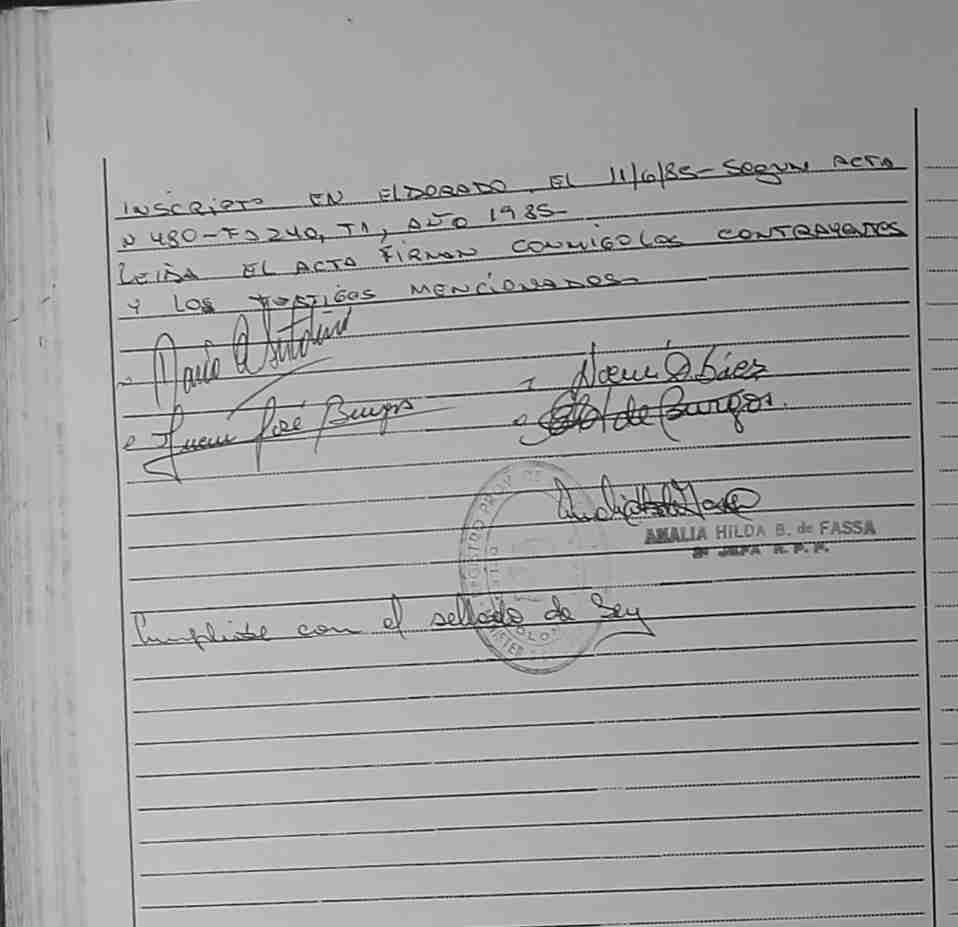 INSCRIPTO EN ELDORADO, EL 11/6/85- SEGUN ACTA
N 480-Fº 240, T1, AÑO 1985-
LEIDA EL ACTA FIRMAN CONMIGO LOS CONTRAYENTES
Y LOS TESTIGOS MENCIONADOS-
Noemí Báez
Juan José Burgos
de Burgos.
AMALIA HILDA B. de FASSA
2º JEFA R. P. P.
Cumplióse con el sellado de Ley